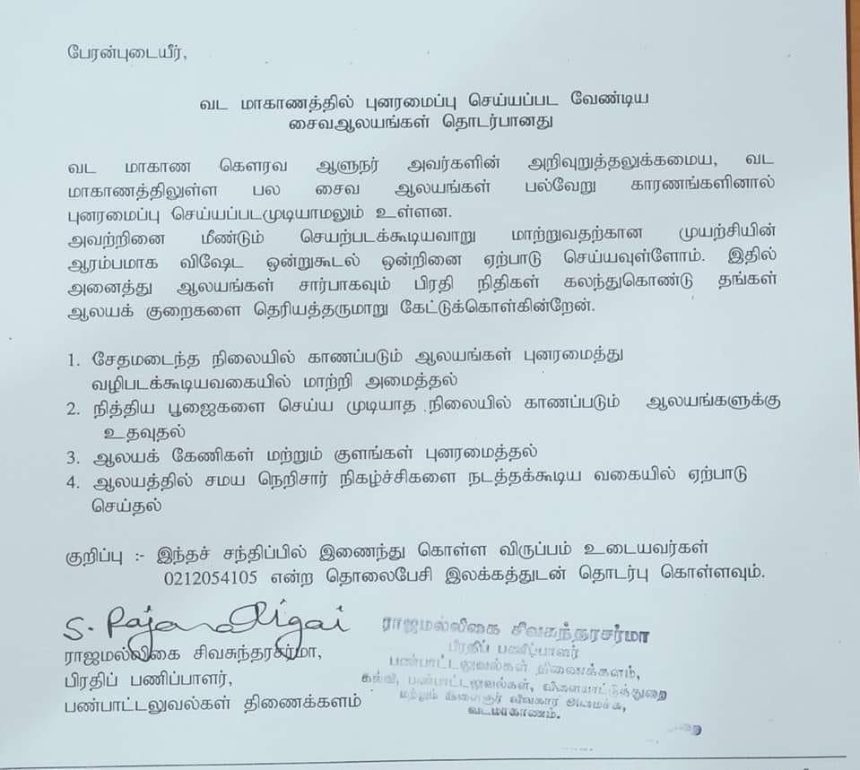 பேரன்புடையீர்,
வட மாகாணத்தில் புனரமைப்பு செய்யப்பட வேண்டிய
சைவஆலயங்கள் தொடர்பானது
வட மாகாண கௌரவ ஆளுநர் அவர்களின் அறிவுறுத்தலுக்கமைய, வட
மாகாணத்திலுள்ள பல சைவ ஆலயங்கள் பல்வேறு காரணங்களினால்
புனரமைப்பு செய்யப்படமுடியாமலும் உள்ளன.
அவற்றினை மீண்டும் செயற்படக்கூடியவாறு மாற்றுவதற்கான முயற்சியின்
ஆரம்பமாக விஷேட ஒன்றுகூடல் ஒன்றினை ஏற்பாடு செய்யவுள்ளோம். இதில்
அனைத்து ஆலயங்கள் சார்பாகவும் பிரதி நிதிகள் கலந்துகொண்டு தங்கள்
ஆலயக் குறைகளை தெரியத்தருமாறு கேட்டுக்கொள்கின்றேன்.
1. சேதமடைந்த நிலையில் காணப்படும் ஆலயங்கள் புனரமைத்து
வழிபடக்கூடியவகையில் மாற்றி அமைத்தல்
2. நித்திய பூஜைகளை செய்ய முடியாத நிலையில் காணப்படும் ஆலயங்களுக்கு
உதவுதல்
3. ஆலயக் கேணிகள் மற்றும் குளங்கள் புனரமைத்தல்
4. ஆலயத்தில் சமய நெறிசார் நிகழ்ச்சிகளை நடத்தக்கூடிய வகையில் ஏற்பாடு
செய்தல்
குறிப்பு :- இந்தச் சந்திப்பில் இணைந்து கொள்ள விருப்பம் உடையவர்கள்
0212054105 என்ற தொலைபேசி இலக்கத்துடன் தொடர்பு கொள்ளவும்.
S. Rajamalligai
ராஜமல்லிகை சிவசுந்தரசர்மா,
பிரதிப் பணிப்பாளர்,
பண்பாட்டலுவல்கள் திணைக்களம்
ராஜமல்லிகை சிவசுந்தரசர்மா
பிரதிப் பணிப்பாளர்
பண்பாட்டலுவல்கள் திணைக்களம்,
கல்வி, பண்பாட்டலுவல்கள், விளையாட்டுத்துறை
மற்றும் இளைஞர் விவகார அமைச்சு,
வடமாகாணம்.